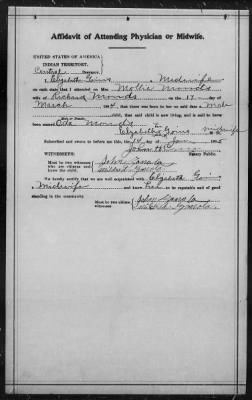 Affidavit of Attending Physician or Midwife.
UNITED STATES OF AMERICA
INDIAN TERRITORY.
Central District.
I, Elizabeth Goins, a Midwife
on oath state that I attended on Mrs. Mollie
wife of Richard on the 17 day of
March, 190 4, that there was born to her on said date a Male
child; that said child is now living, and is said to have
been named Oda
Elizabeth Goins midwife M. D.
Subscribed and sworn to before me this, the 14 day of Jan 190 5
Notary Public.
Must be two witnesses who are citizens and know the child.
John
Mildred
We hereby certify that we are well acquainted with Elizabeth Goins
a Midwife and know her to be reputable and of good
standing in the community.
Must be two citizen witnesses.
John
Mildred